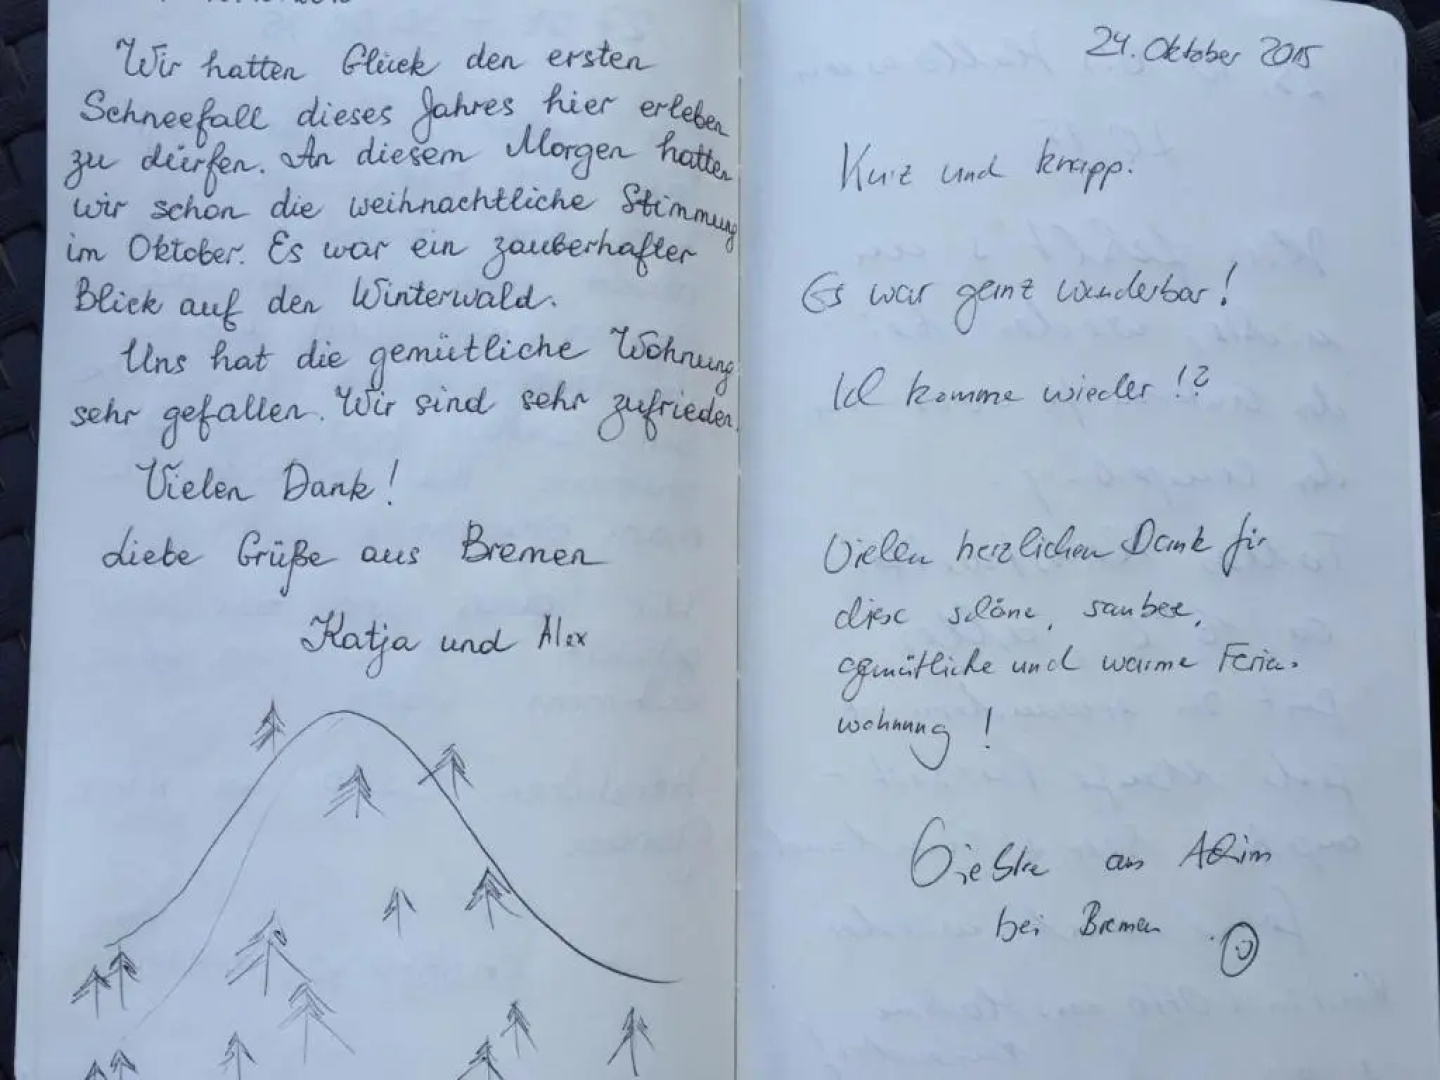 Wir hatten Glück den ersten
Schneefall dieses Jahres hier erleben
zu dürfen. An diesem Morgen hatten
wir schon die weihnachtliche Stimmung
im Oktober. Es war ein zauberhafter
Blick auf den Winterwald.
Uns hat die gemütliche Wohnung
sehr gefallen. Wir sind sehr zufrieden.
Vielen Dank!
Liebe Grüße aus Bremen
Katja und Alex
24. Oktober 2015
Kurz und knapp.
Es war ganz wunderbar!
Ich komme wieder!?
Vielen herzlichen Dank für
diese schöne, saubere,
gemütliche und warme Ferien-
wohnung!
aus Achim
bei Bremen